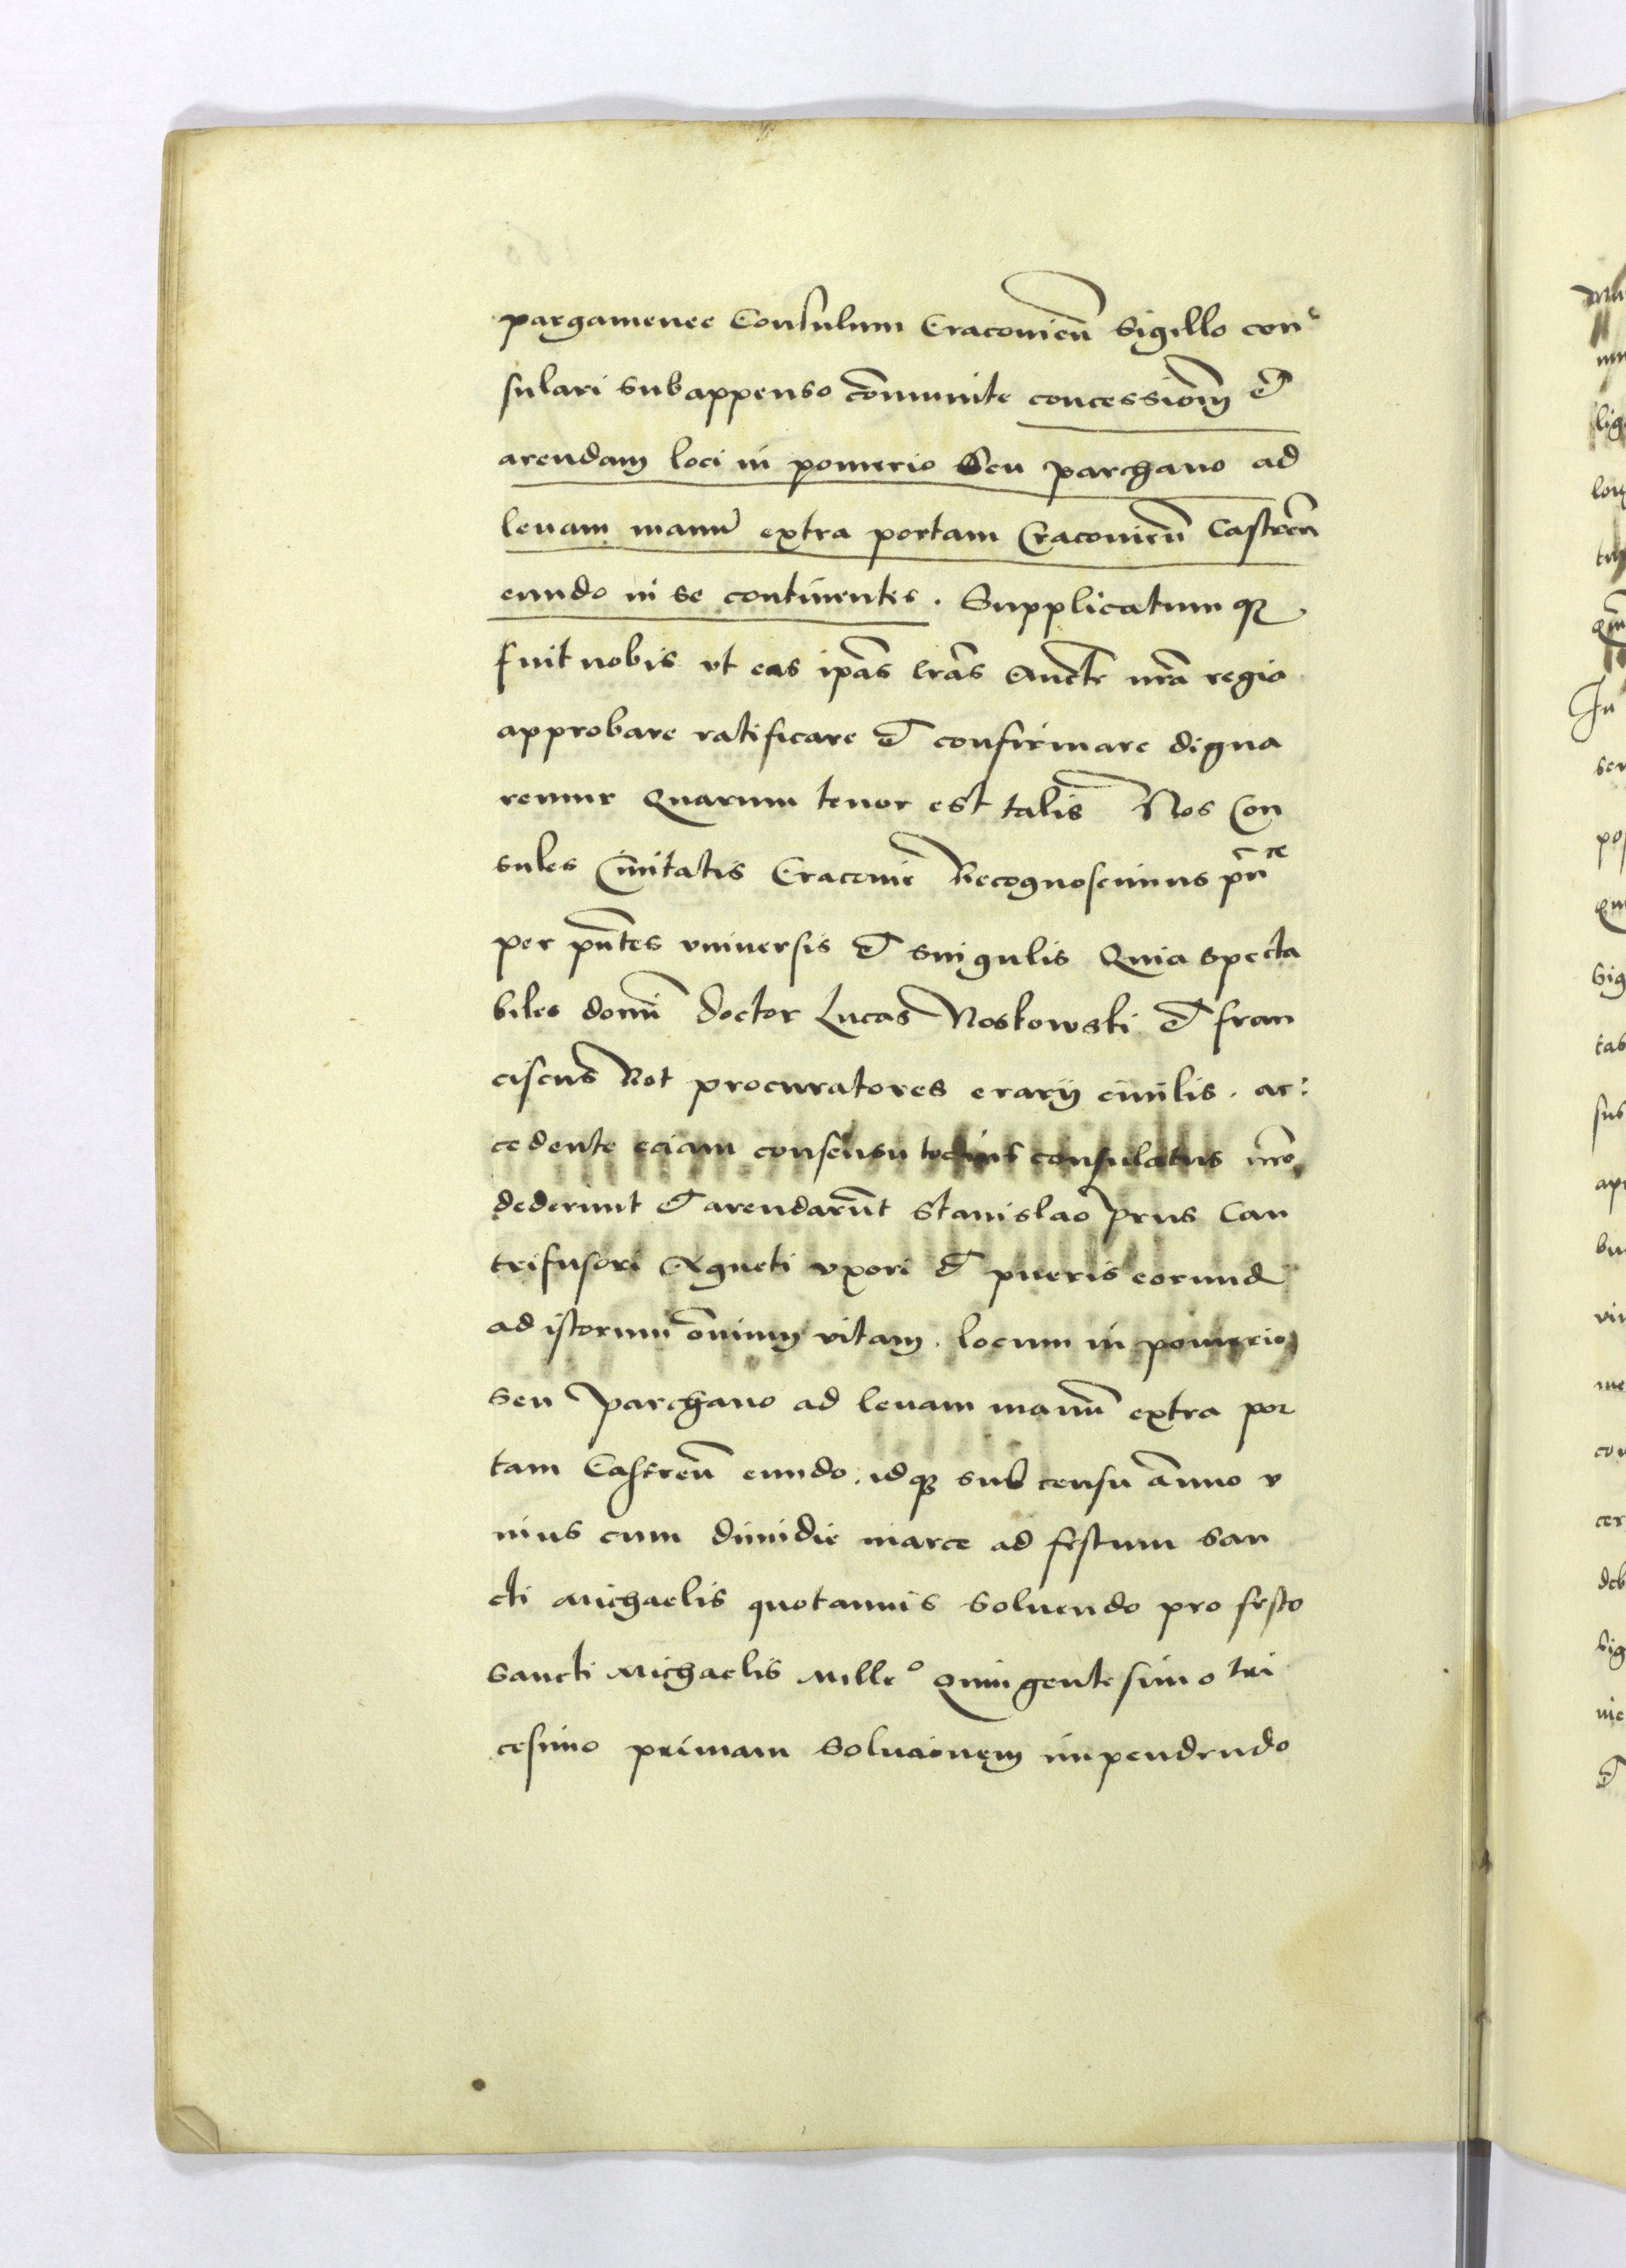 pargamenee Consulum Cracovien̄ Sigillo con
sulari subappenso com̄unite concessiom̄ et
arendam loci in pomerio Seu parchano ad
levam manū extra portam Cracovien̄ Castren̄
eundo in se continentes. Supplicatumqꝫ
fuit nobis vt eas ip̄as lr̄as Auctẽ nr̄a regia
approbare ratificare et confirmare digna
remur Quarum tenor est talis Nos Con
sules Civitatis Cracovie Recognoscimus pn̄
per pn̄tes vniversis et singulis Quia specta
biles domī doctor Lucas Noskowski et fran
ciscus Bot procuratores erarij civilis. ac:
cedente eciam consensu tocius consulatus nr̄o
dederunt et arendarūt Stanislao Prus Can
trifusori Agneti vxori et pueris eorund
ad istorum om̄nium vitam. locum in pomerio
seu parchano ad levam manū extra por
tam Castren̄ eundo. idqꝫ sub censu an̄uo v
nius cum dimidie marce ad festum San
cti Michaelis quotannis Solvendo pro festo
Sancti Michaelis Mille° Quingentesimo tri
cesimo primam Solucionem impendendo